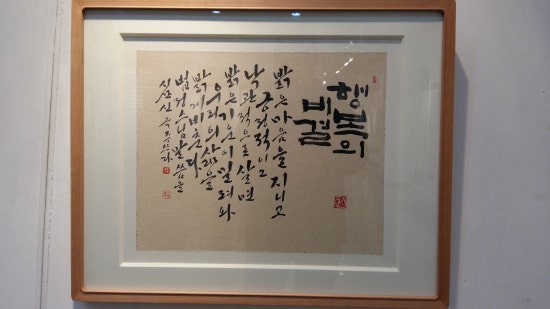 행복의
비결
밝은 마음을 지니고
긍정적이고
낙관적으로 살면
밝은 기운이 밀려와
우리의 삶을
밝게 비춘다
법정스님 말씀을